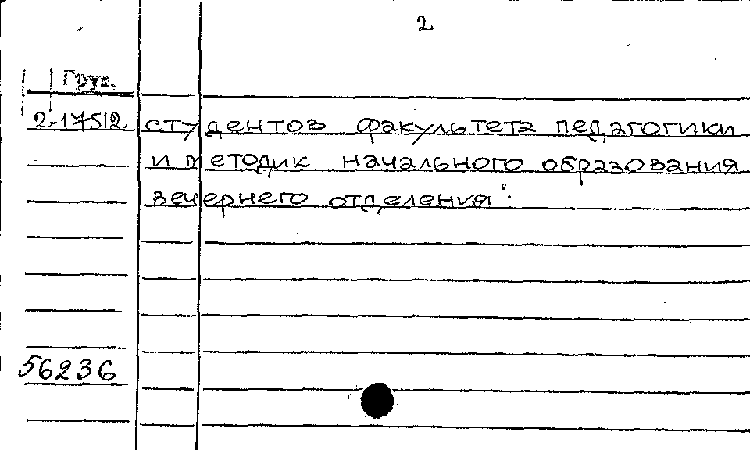 2
Груз.
2-17512 студентов факультета педагогики
и методик начального образования
вечернего отделения".
56236